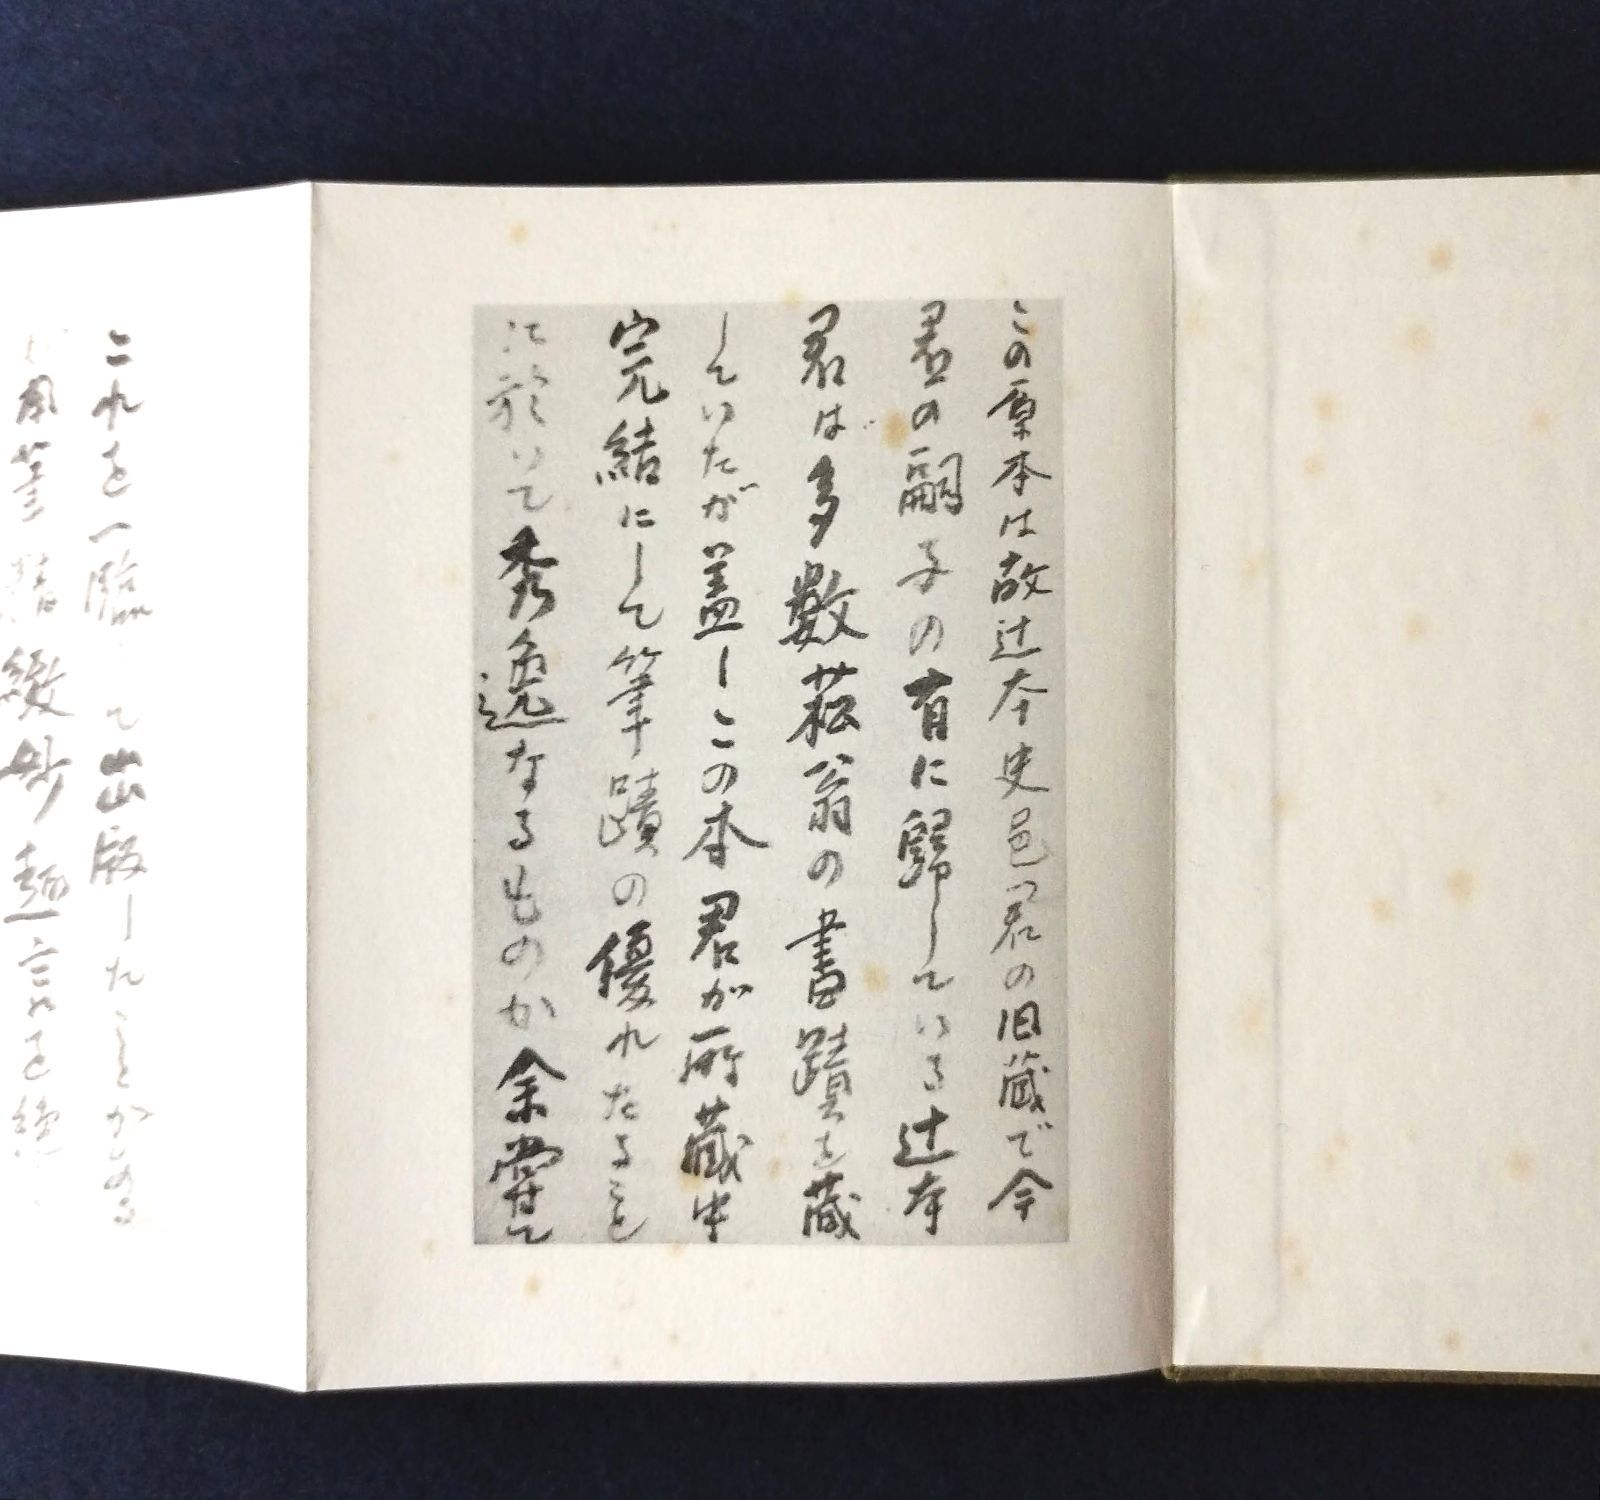 この原本は故辻本史邑君の旧蔵で今
君の嗣子の有に歸している辻本
君は多数菘翁の書蹟を蔵
していたが蓋しこの本君が所蔵中
完結にして筆蹟の優れたること
に於いて秀逸なるものか余嘗て
これを一臨して出版したことがある
筆精緻妙趣言を絶